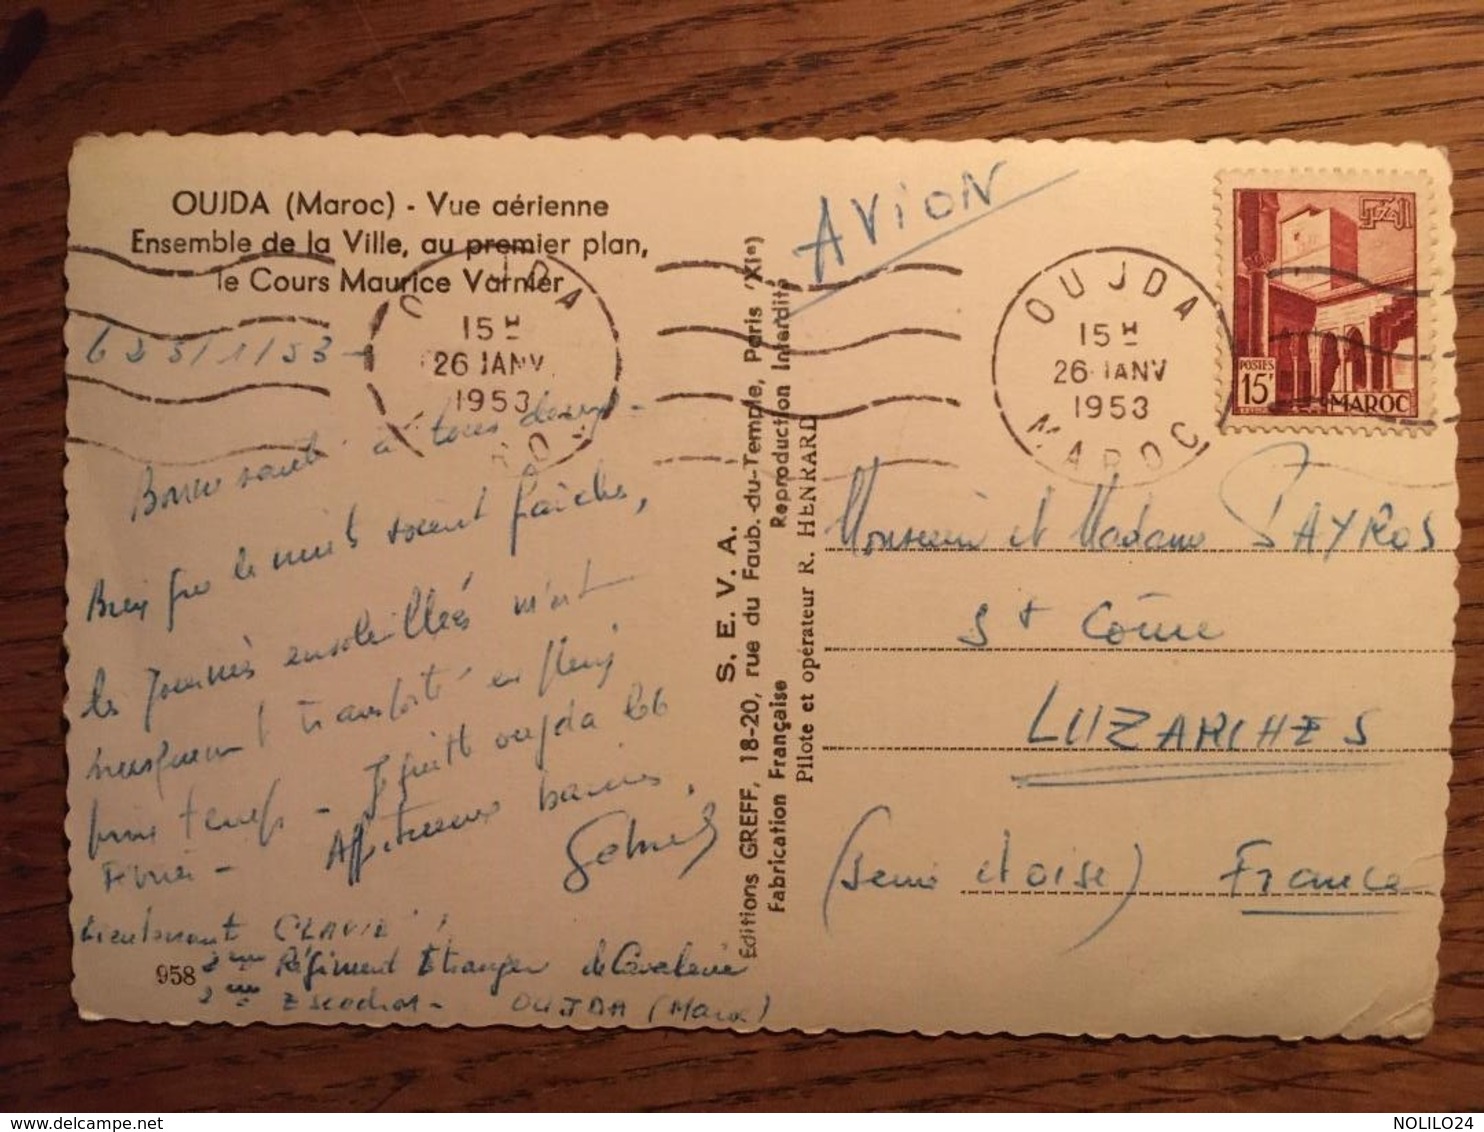 OUJDA (Maroc) - Vue aérienne
Ensemble de la Ville, au premier plan,
le Cours Maurice Varnier
OUJDA
15 H
26 JANV
1953
MAROC
le 25/1/53 -
Bonne santé à tous deux -
Bien que les nuits soient fraîches,
les journées ensoleillées m'ont
brusquement transporté en plein
printemps - Je quitte Oujda le 6
Février - Affectueux baisers.
Lieutenant CLAVIE
2ème Régiment Etranger de Cavalerie
2ème Escadron - OUJDA (Maroc)
958
S. E. V. A.
Editions GREFF, 18-20, rue du Faub.-du-Temple, Paris (XIe)
Fabrication Française
Reproduction Interdite
Pilote et opérateur R. HENRARD
AVION
OUJDA
15 H
26 JANV
1953
MAROC
POSTES
15F
MAROC
Monsieur et Madame PAYROS
St Côme
LUZARCHES
(Seine et Oise) France
NOLILO24